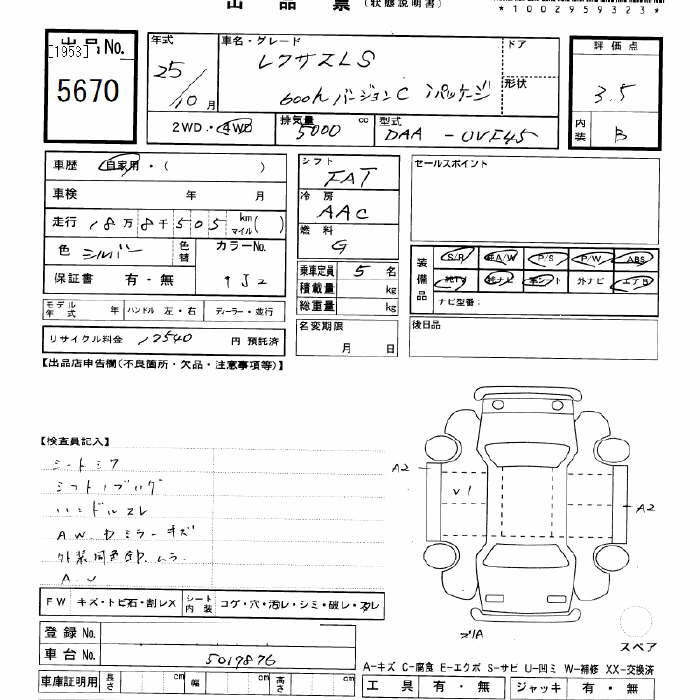 出品票 (状態説明書)
*1002959323*
出品No.
[1953]
5670
年式
25/10月
車名・グレード
レクサスLS
600h バージョンC Iパッケージ
ドア
形状
評価点
3.5
内装 B
2WD・4WD
排気量 5000 cc
型式 DAA - UVF45
車歴 自家用・( )
車検 年 月
走行 18万8千505 km マイル( )
色 シルバー
色替
カラーNo. 1J2
保証書 有・無
モデル年式 年
ハンドル 左・右
ディーラー・並行
リサイクル料金 12540 円 預託済
シフト
FAT
冷房
AAC
燃料
G
乗車定員 5 名
積載量 kg
総重量 kg
名変期限
月 日
セールスポイント
装備品
S/R 純A/W P/S P/W ABS
純TV 純ナビ 革シート 外ナビ エアB
ナビ型番:
後日品
【出品店申告欄(不良箇所・欠品・注意事項等)】
【検査員記入】
シートシワ
シフトノブハゲ
ハンドルスレ
A.W. ドミラーキズ
A2
V1
A2
FW キズ・トビ石・割レX
シート内装 コゲ・穴・汚レ・シミ・破レ・スレ
登録No.
車台No. 5019876
車庫証明用 長さ cm 幅 cm 高さ cm
スペア
A-キズ C-腐食 E-エクボ S-サビ U-凹ミ W-補修 XX-交換済
工具 有・無 ジャッキ 有・無